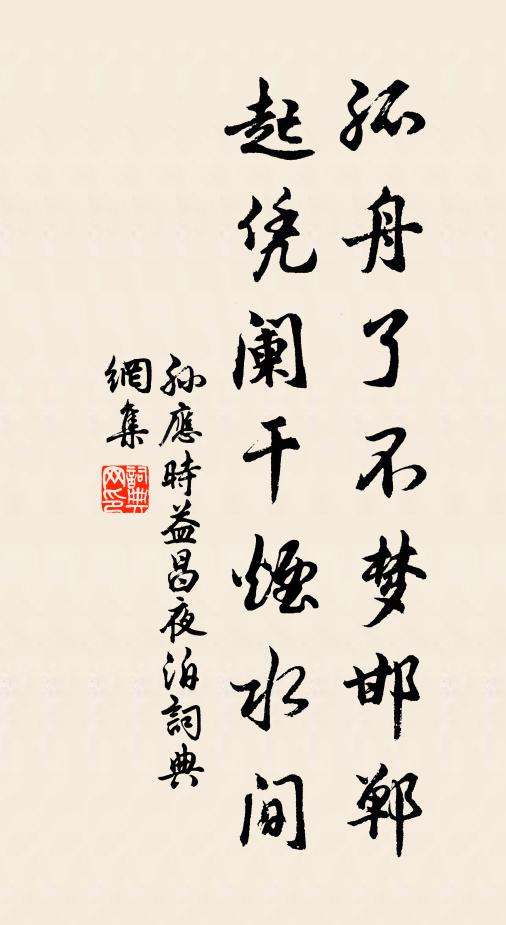 孤舟了不梦邯郸
起凭阑干烟水间
孙應時益昌夜泊詞典
網集
詞典網印